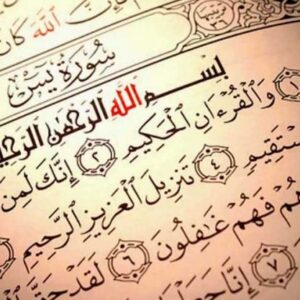 فَإِنَّ ٱللَّهَ كَانَ
سُورَةُ يسٓ
بِسْمِ ٱللَّهِ ٱلرَّحْمَٰنِ ٱلرَّحِيمِ
١ وَٱلْقُرْءَانِ ٱلْحَكِيمِ ٢ إِنَّكَ لَمِنَ
مُّسْتَقِيمٍ ٤ تَنزِيلَ ٱلْعَزِيزِ ٱلرَّحِيمِ
هُمْ فَهُمْ غَٰفِلُونَ ٦ لَقَدْ حَقَّ
٧ إِنَّا